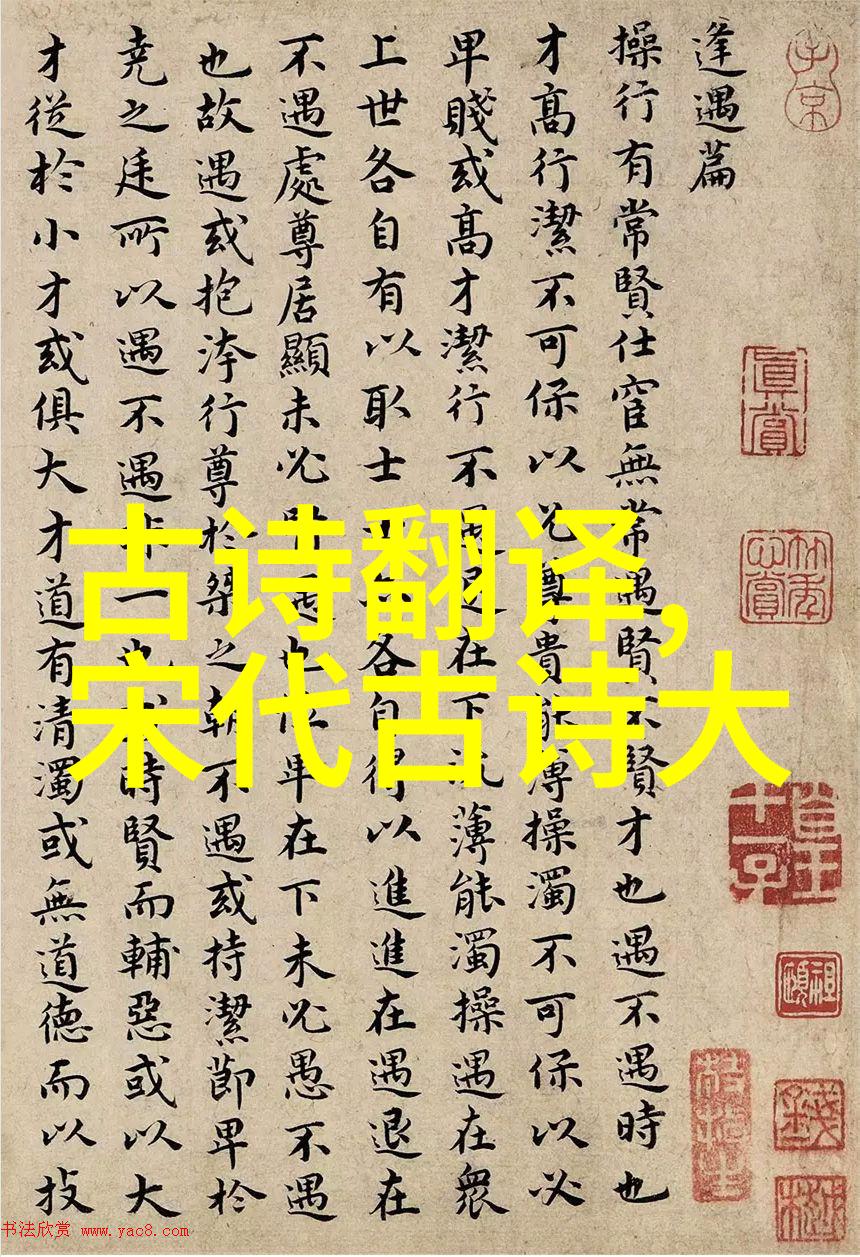 逢遇篇
操行有常賢仕宦無常遇賢不賢才也遇不遇時也
才高行潔不可保以必尊貴能薄操濁不可保以必
卑賤或高才潔行不遇退在下流薄能濁操遇在衆
上世各自有以取士士亦各自得以進進在遇退在
不遇處尊居顯未必賢遇也位卑在下未必愚不遇
也故遇或抱洿行尊於桀之朝不遇或持潔節卑於
尭之廷所以遇不遇非一也或時賢而輔惡或以大
才從於小才或俱大才道有清濁或無道德而以技
古诗翻译,
宋代古诗大
真賞
书法欣赏 www.yac8.com